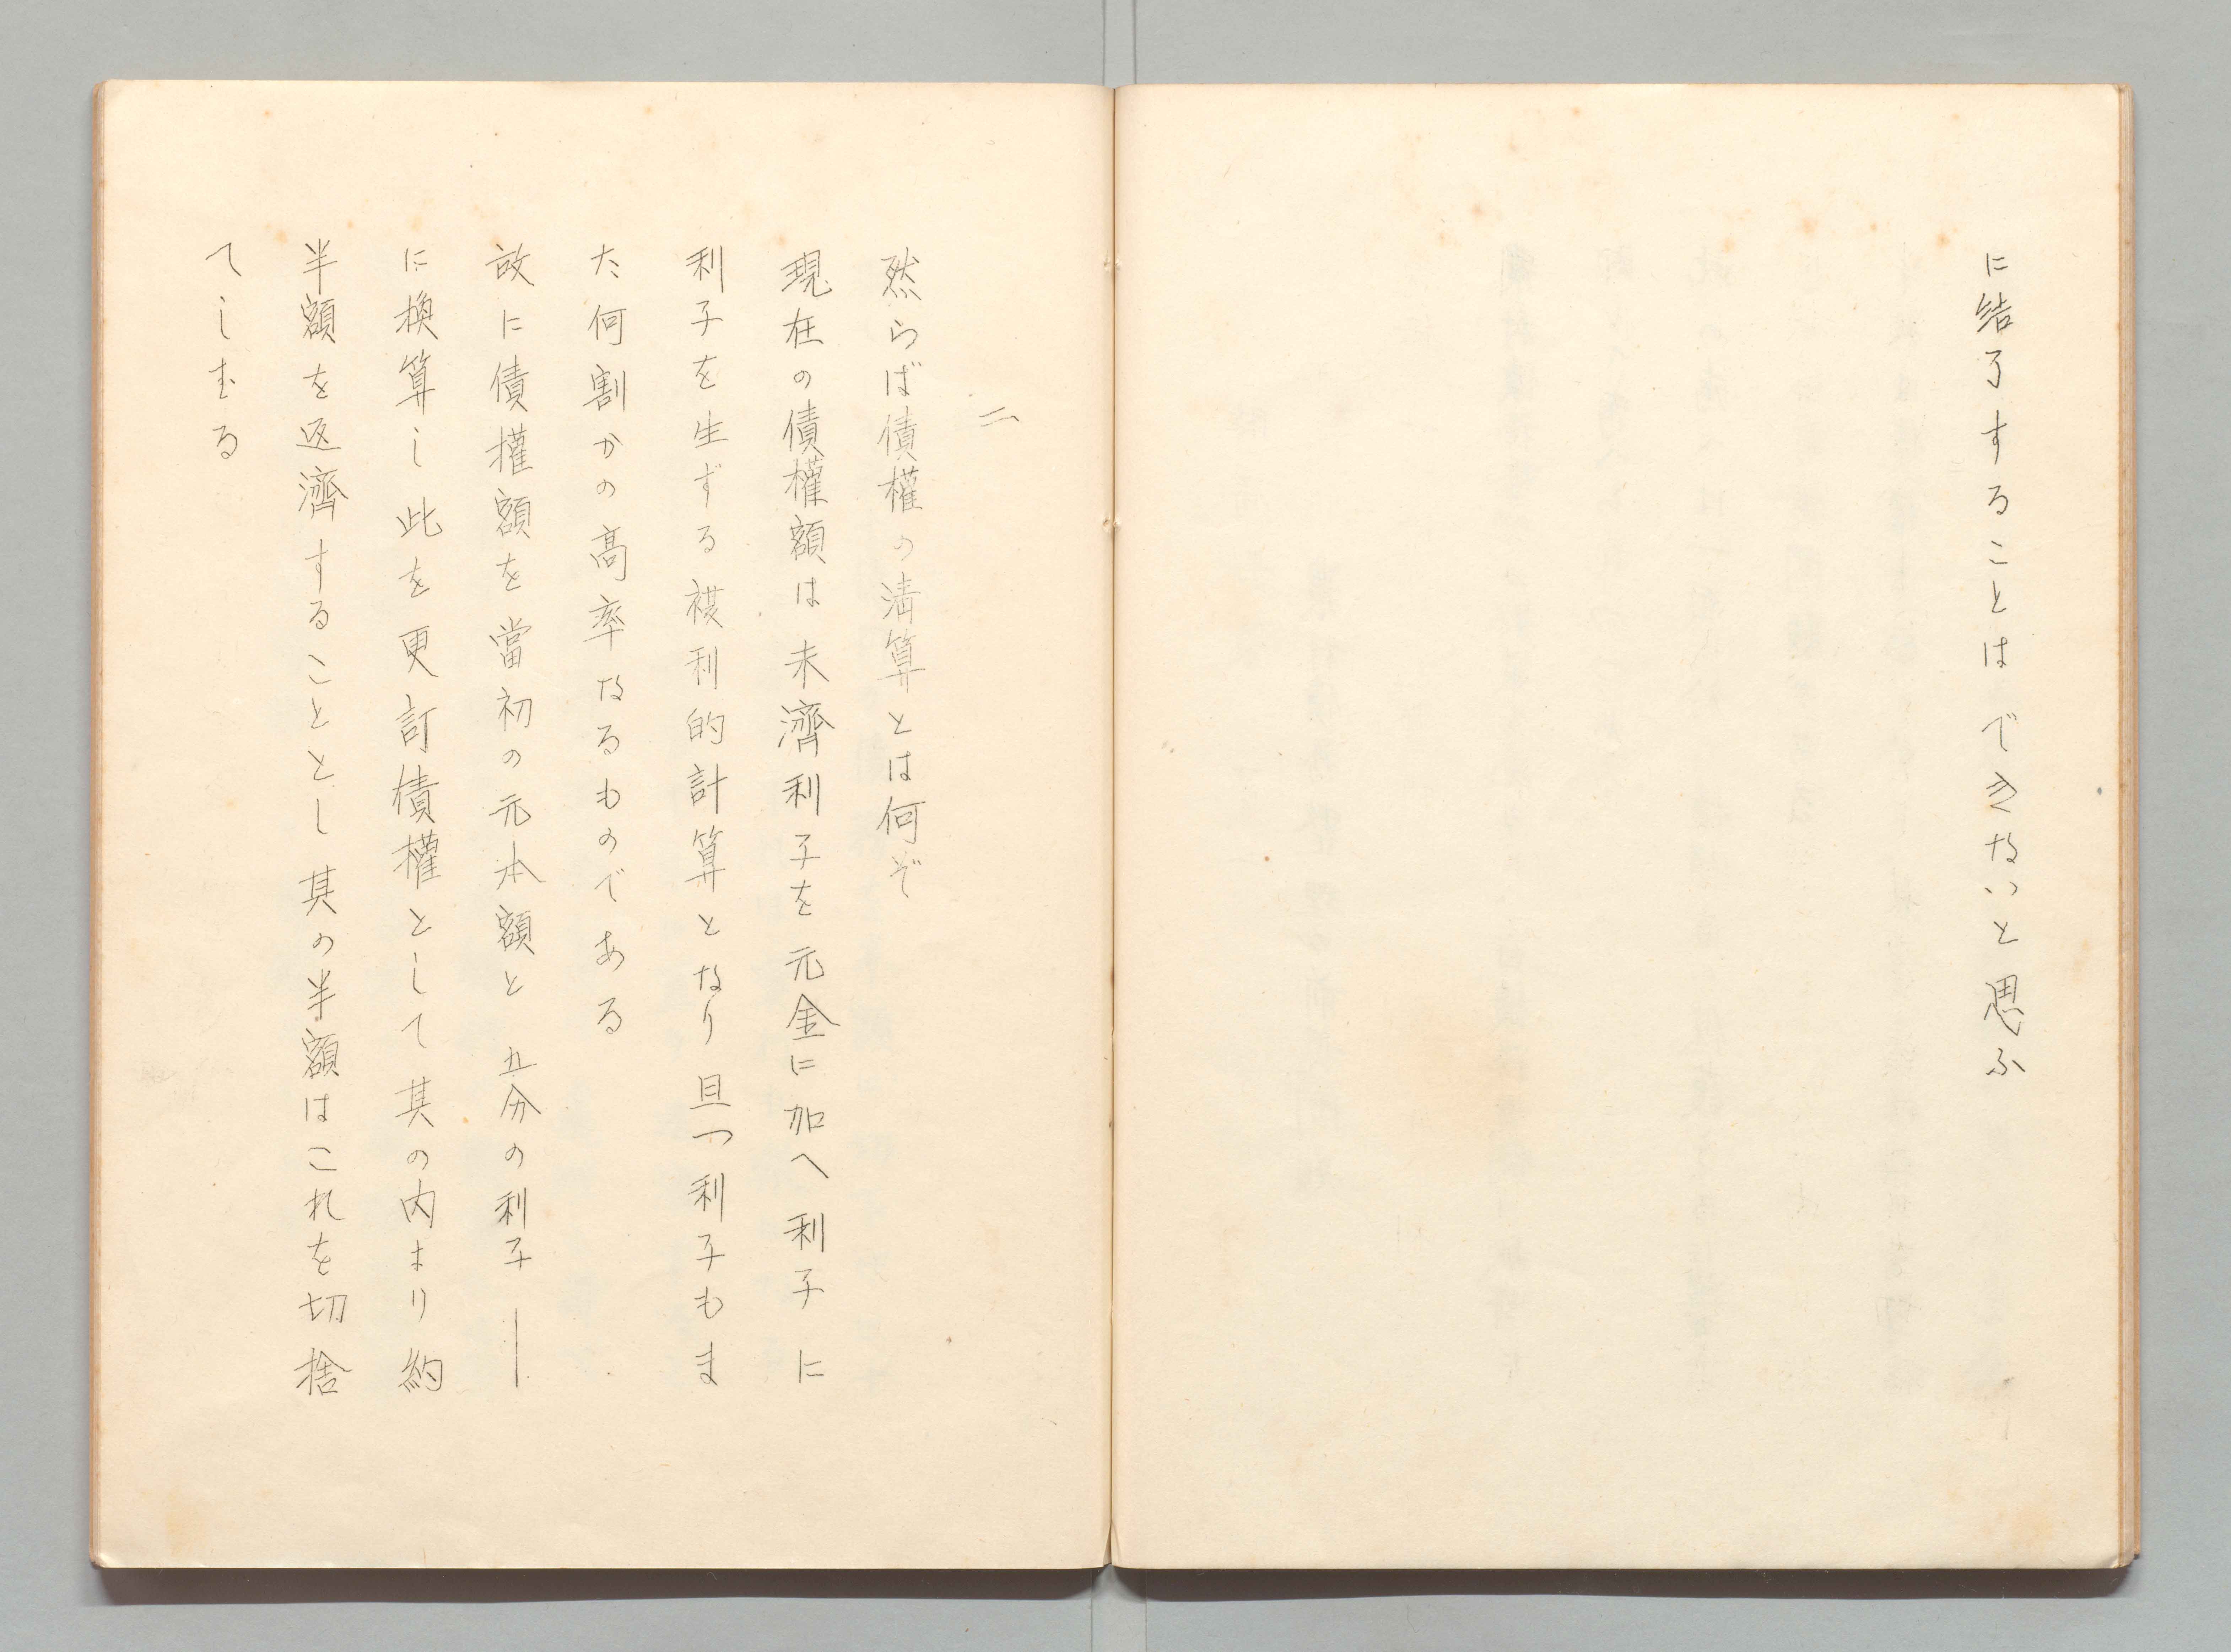 に結了することはできないと思ふ
二
然らば債權の清算とは何ぞ
現在の債權額は未濟利子を元金に加へ利子に
利子を生ずる複利的計算となり且つ利子もま
た何割かの高率なるものである
故に債權額を當初の元本額と五分の利子―
に換算し此を更訂債權として其の内より約
半額を返濟することとし其の半額はこれを切捨
てしむる